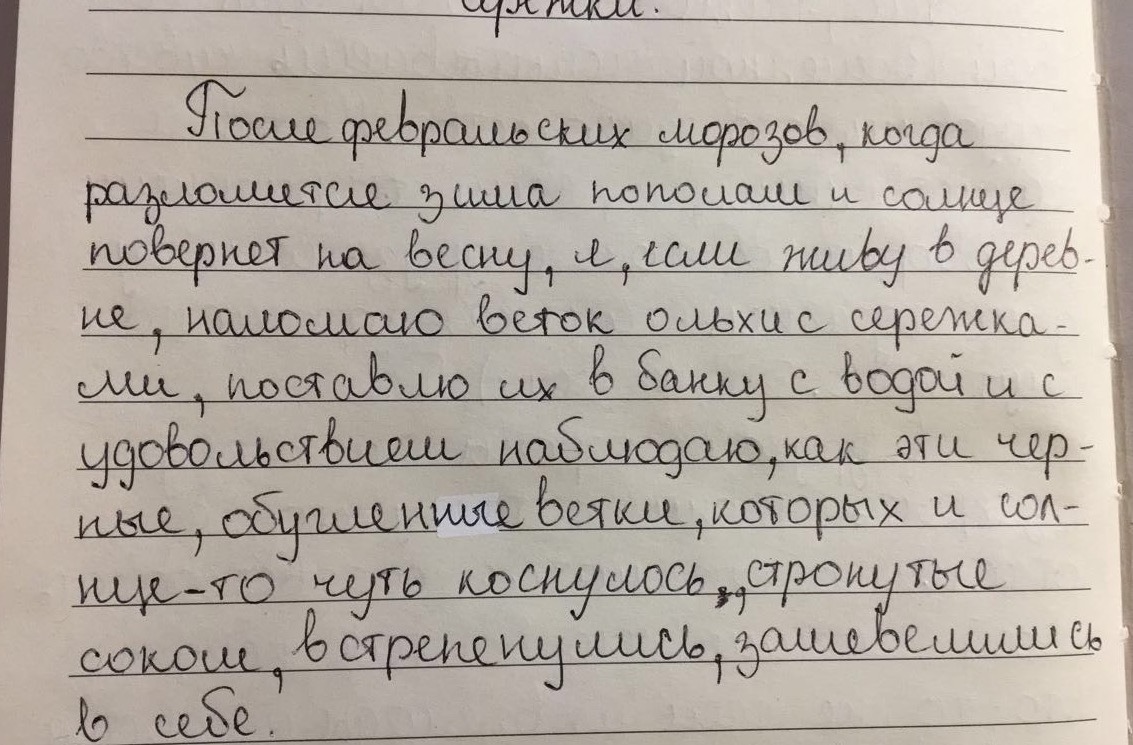 сережки.
После февральских морозов, когда
разломится зима пополам и солнце
повернет на весну, я, если живу в дерев-
не, наломаю веток ольхи с сережка-
ми, поставлю их в банку с водой и с
удовольствием наблюдаю, как эти чер-
ные, обугленные ветки, которых и сол-
нце-то чуть коснулось, стронутые
соком, встрепенулись, зашевелились
в себе.